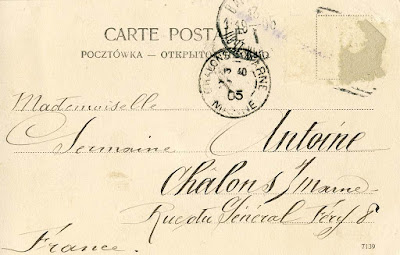 CARTE POSTA
POCZTÓWKA — ОТКРЫТО
CHALONS MARNE
05
MARNE
Mademoiselle
Germaine Antoine
Châlons s/Marne
Rue du Général Féry 8
France.
7139